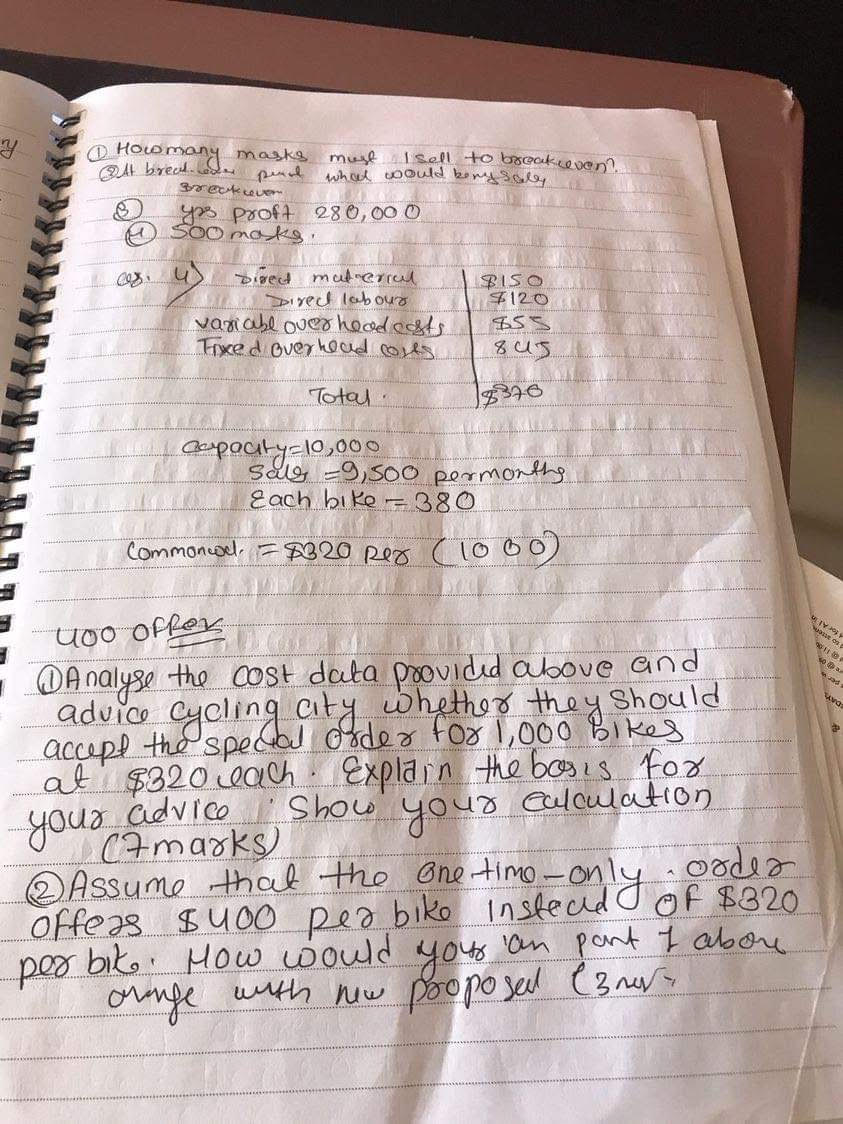 y
① How many masks must I sell to breakeven?
② At break-even what would be my sales
Breakeven
③ yes profit 280,000
④ 500 masks.
4) Direct material $150
Direct labour $120
variable overhead costs $55
Fixed overhead costs $45
Total. $370
capacity=10,000
Sales =9,500 per months
Each bike = 380
= $320 per (1000)
400 offer
① Analyse the cost data provided above and
advice cycling city whether they should
accept the special order for 1,000 bikes
at $320 each. Explain the basis for
your advice. Show your calculation
(7marks)
② Assume that the one time-only order
offers $400 per bike instead of $320
per bike. How would your an part 1 above
with new proposed (3